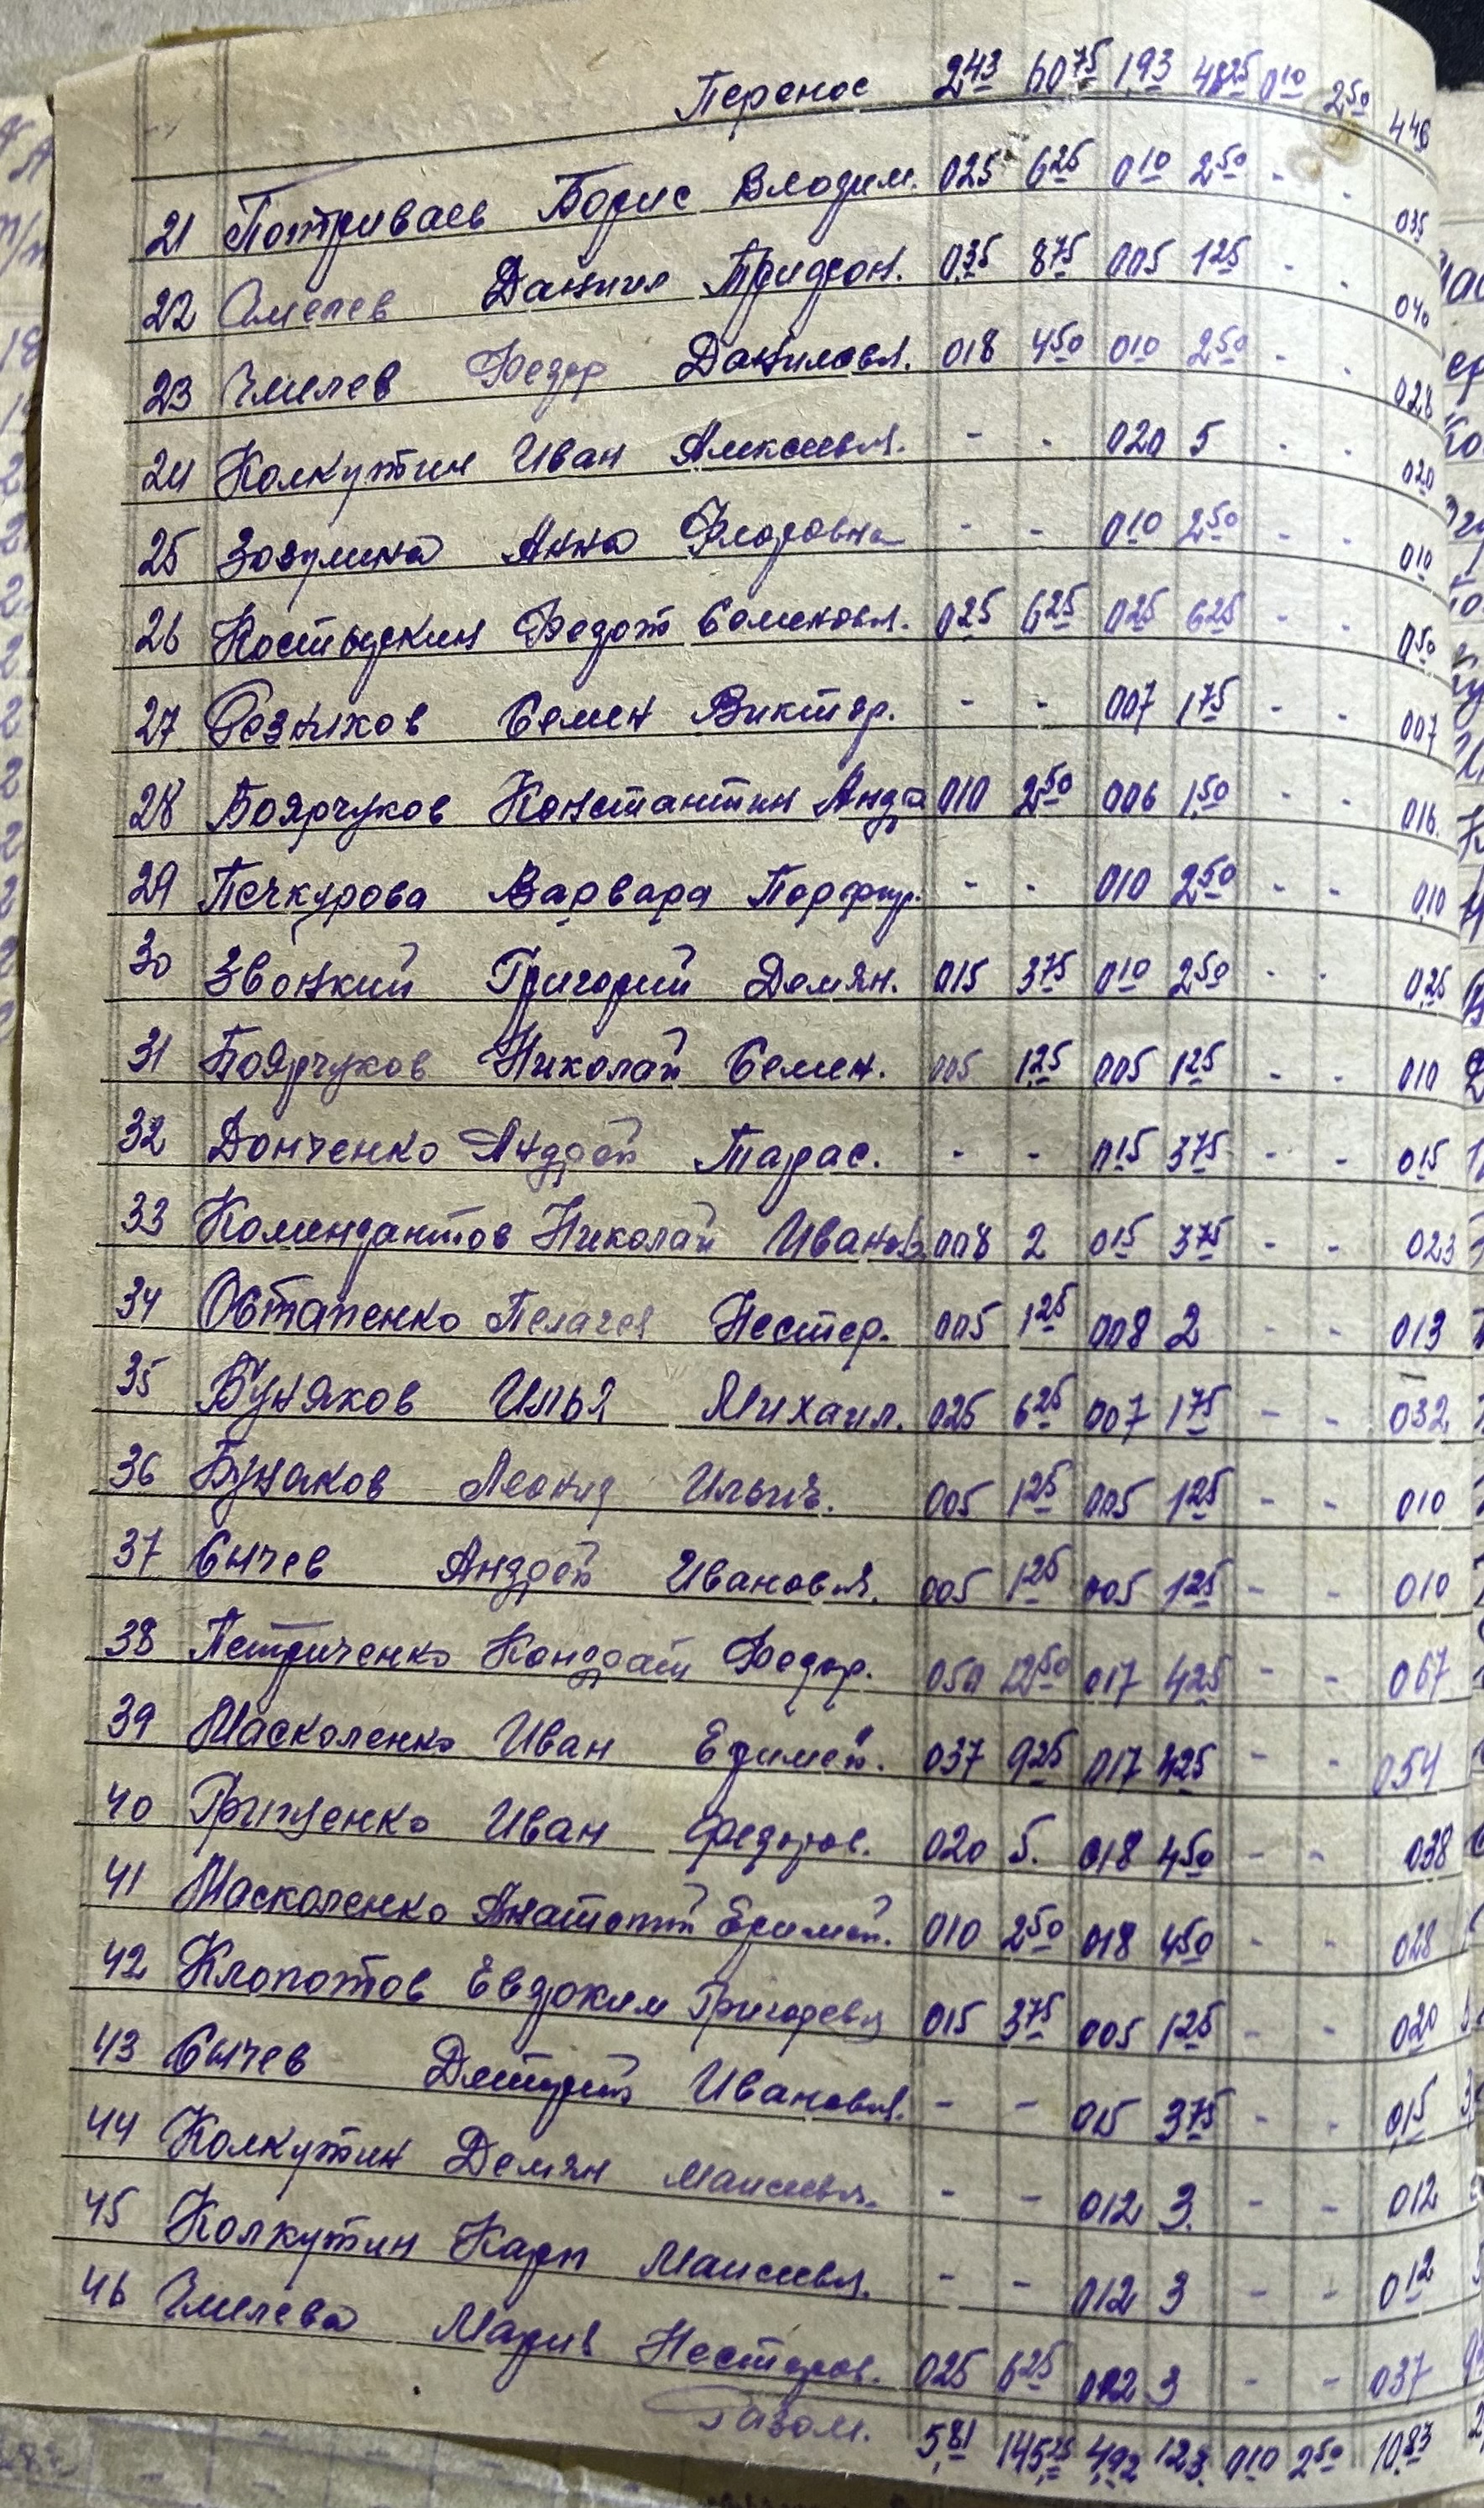 Перенос 2,43 60,75 1,93 48,25 0,10 2,50 4,46
21 Потриваев Борис Владим. 025 6,25 010 2,50 - - 035
22 Данил 0,35 8,75 005 1,25 - - 040
23 Чмелев Федор Данилов. 018 4,50 010 2,50 - - 028
24 Колкутин Иван Алексеев. - - 020 5 - - 020
25 Зозулина Анна Флоровна - - 010 2,50 - - 010
26 Костыркин Федот Семенов. 025 6,25 025 6,25 - - 050
27 Резников Семен Виктор. - - 007 1,75 - - 007
28 Боярчуков Константин Андр 010 2,50 006 1,50 - - 016
29 Печкурова Варвара Порфир. - - 010 2,50 - - 010
30 Звонкий Григорий Демян. 015 3,75 010 2,50 - - 025
31 Боярчуков Николай Семен. 005 1,25 005 1,25 - - 010
32 Донченко Андрей Тарас. - - 015 3,75 - - 015
33 Комендантов Николай Иванов 008 2 015 3,75 - - 023
34 Остапенко Пелагея Нестер. 005 1,25 008 2 - - 013
35 Буняков Илья Михаил. 025 6,25 007 1,75 - - 032
36 Бунаков Леонид Ильич. 005 1,25 005 1,25 - - 010
37 Сычев Андрей Иванов. 005 1,25 005 1,25 - - 010
38 Петриченко Кондрат Федор. 050 12,50 017 4,25 - - 067
39 Масколенко Иван Ефимей. 037 9,25 017 4,25 - - 054
40 Гриценко Иван Федоров. 020 5. 018 4,50 - - 038
41 Масколенко Анатолий Ефимей. 010 2,50 018 4,50 - - 028
42 Клопотов Евдоким Григорев 015 3,75 005 1,25 - - 020
43 Сычев Дмитрий Иванов. - - 015 3,75 - - 015
44 Колкутин Демян Маисеев. - - 012 3. - - 012
45 Колкутин Карп Маисеев. - - 012 3 - - 012
46 Чмелева Мария Нестеров. 025 6,25 012 3 - - 037
Разом. 5,81 145,25 4,92 123. 010 2,50 10,83